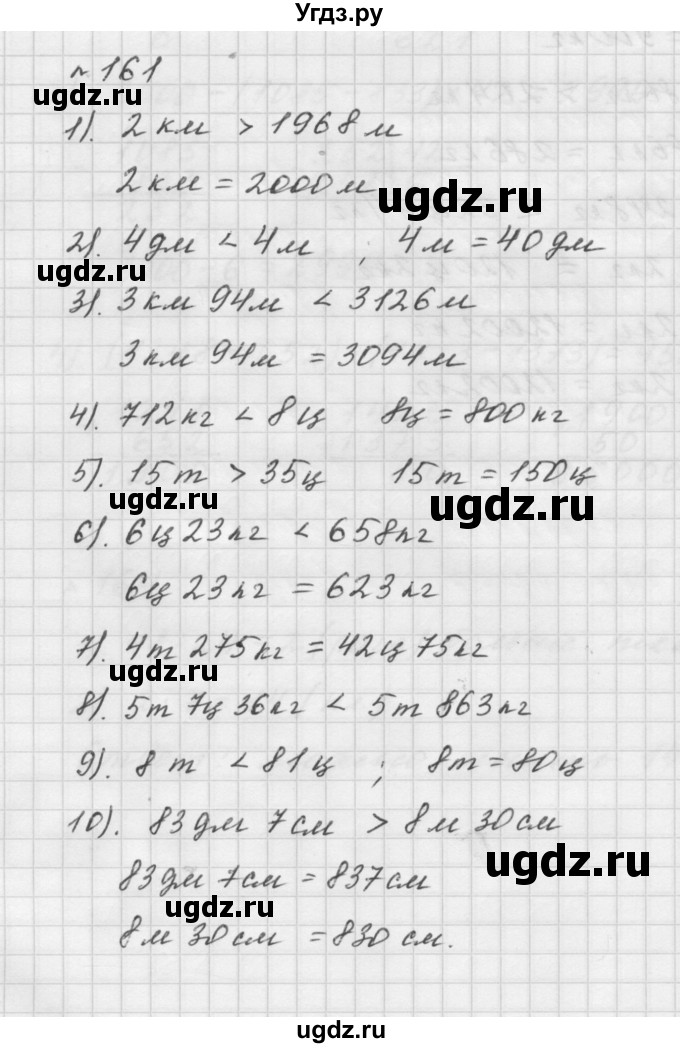 Угдз.ру
№161
ugdz.ru
1). 2 км > 1968 м
2 км = 2000 м
ugdz.ru
2). 4 дм < 4 м , 4 м = 40 дм
ugdz.ru
3). 3 км 94 м < 3126 м
3 км 94 м = 3094 м
ugdz.ru
4). 712 кг < 8 ц 8ц = 800 кг
5). 15 т > 35 ц 15 т = 150 ц
ugdz.ru ugdz.ru
6). 6 ц 23 кг < 658 кг
6ц 23 кг = 623 кг
7). 4 т 275 кг = 42 ц 75 кг
ugdz.ru
8). 5 т 7ц 36 кг < 5 т 863 кг
9). 8 т < 81 ц ; 8 т = 80 ц
10). 83 дм 7 см > 8 м 30 см
ugdz.ru
83 дм 7 см = 837 см
ugdz.ru
8 м 30 см = 830 см.
ugdz.ru